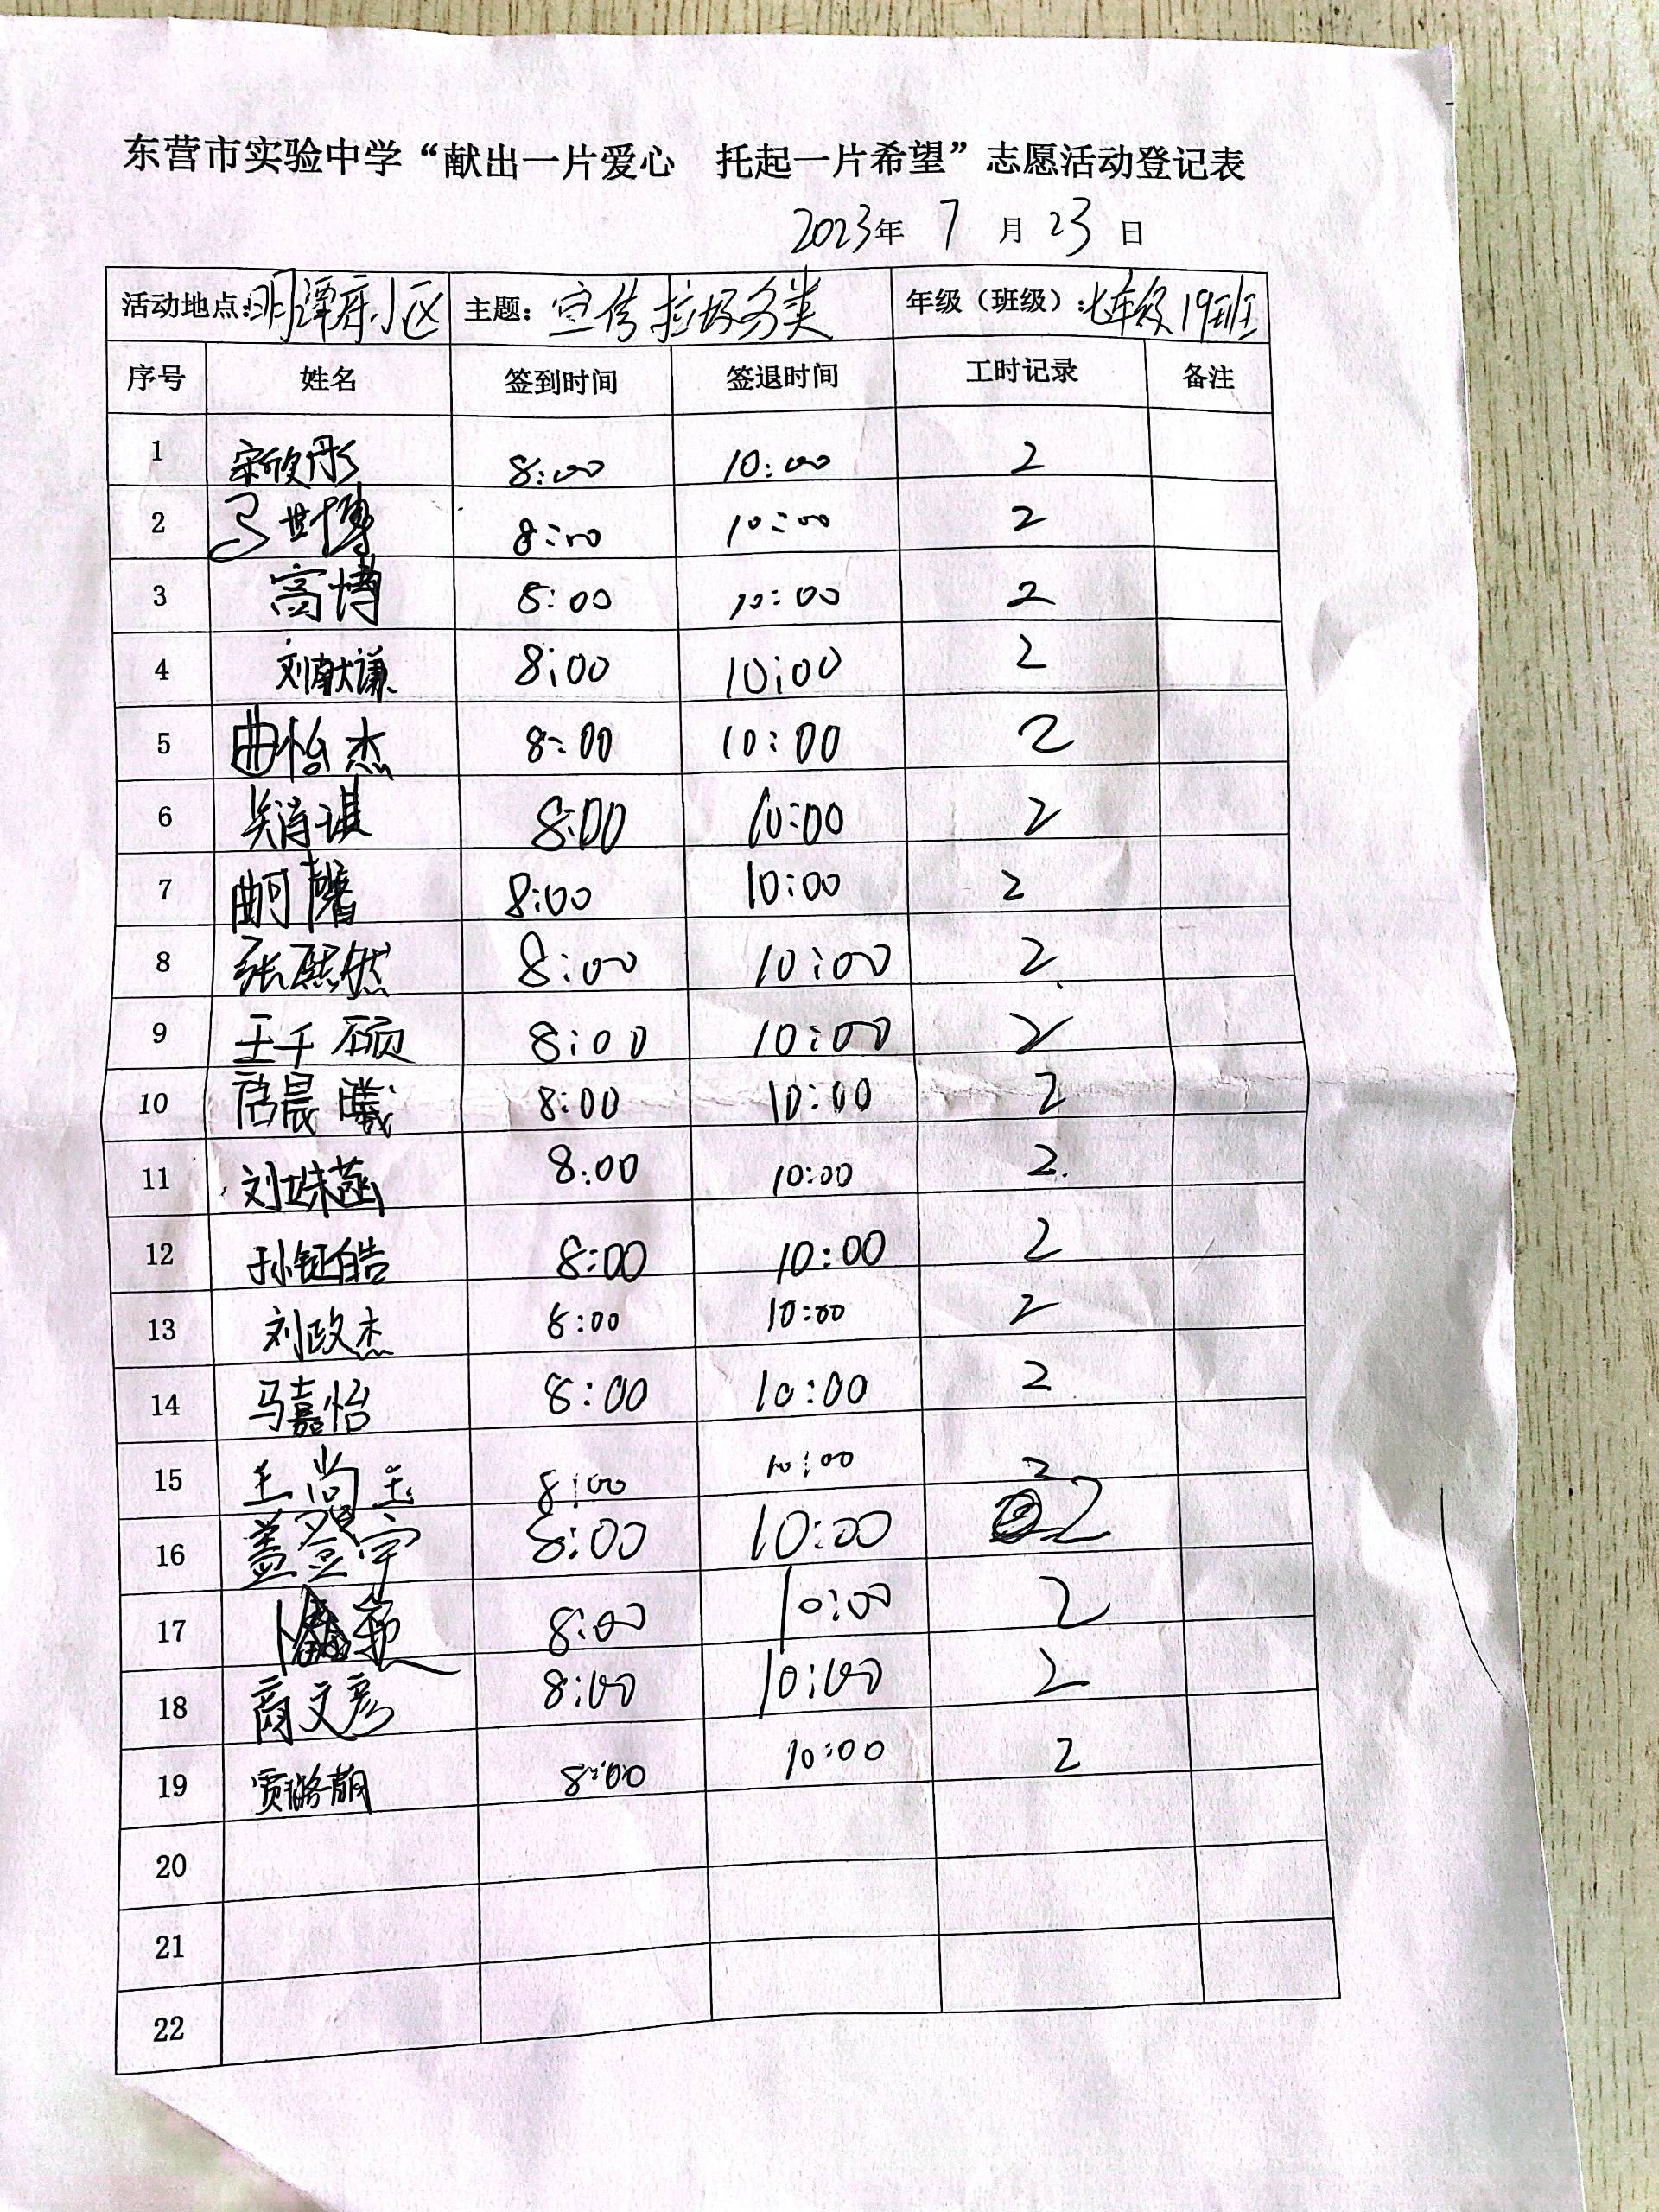 东营市实验中学“献出一片爱心 托起一片希望”志愿活动登记表
2023年 7 月 23 日
活动地点:明潭府小区 主题：宣传垃圾分类 年级（班级）:七年级19班
序号 姓名 签到时间 签退时间 工时记录 备注
1 宋欣彤 8:00 10:00 2
2 马世博 8:00 10:00 2
3 高博 8:00 10:00 2
4 刘献谦 8:00 10:00 2
5 曲怡杰 8:00 10:00 2
6 吴肖琪 8:00 10:00 2
7 曲可馨 8:00 10:00 2
8 张熙然 8:00 10:00 2
9 王千硕 8:00 10:00 2
10 晨曦 8:00 10:00 2
11 刘姝菡 8:00 10:00 2
12 孙钲皓 8:00 10:00 2
13 刘政杰 8:00 10:00 2
14 马嘉怡 8:00 10:00 2
15 王尚玉 8:00 10:00 2
16 盖宇 8:00 10:00 2
17 8:00 10:00 2
18 商文彦 8:00 10:00 2
19 贾璐萌 8:00 10:00 2
20
21
22